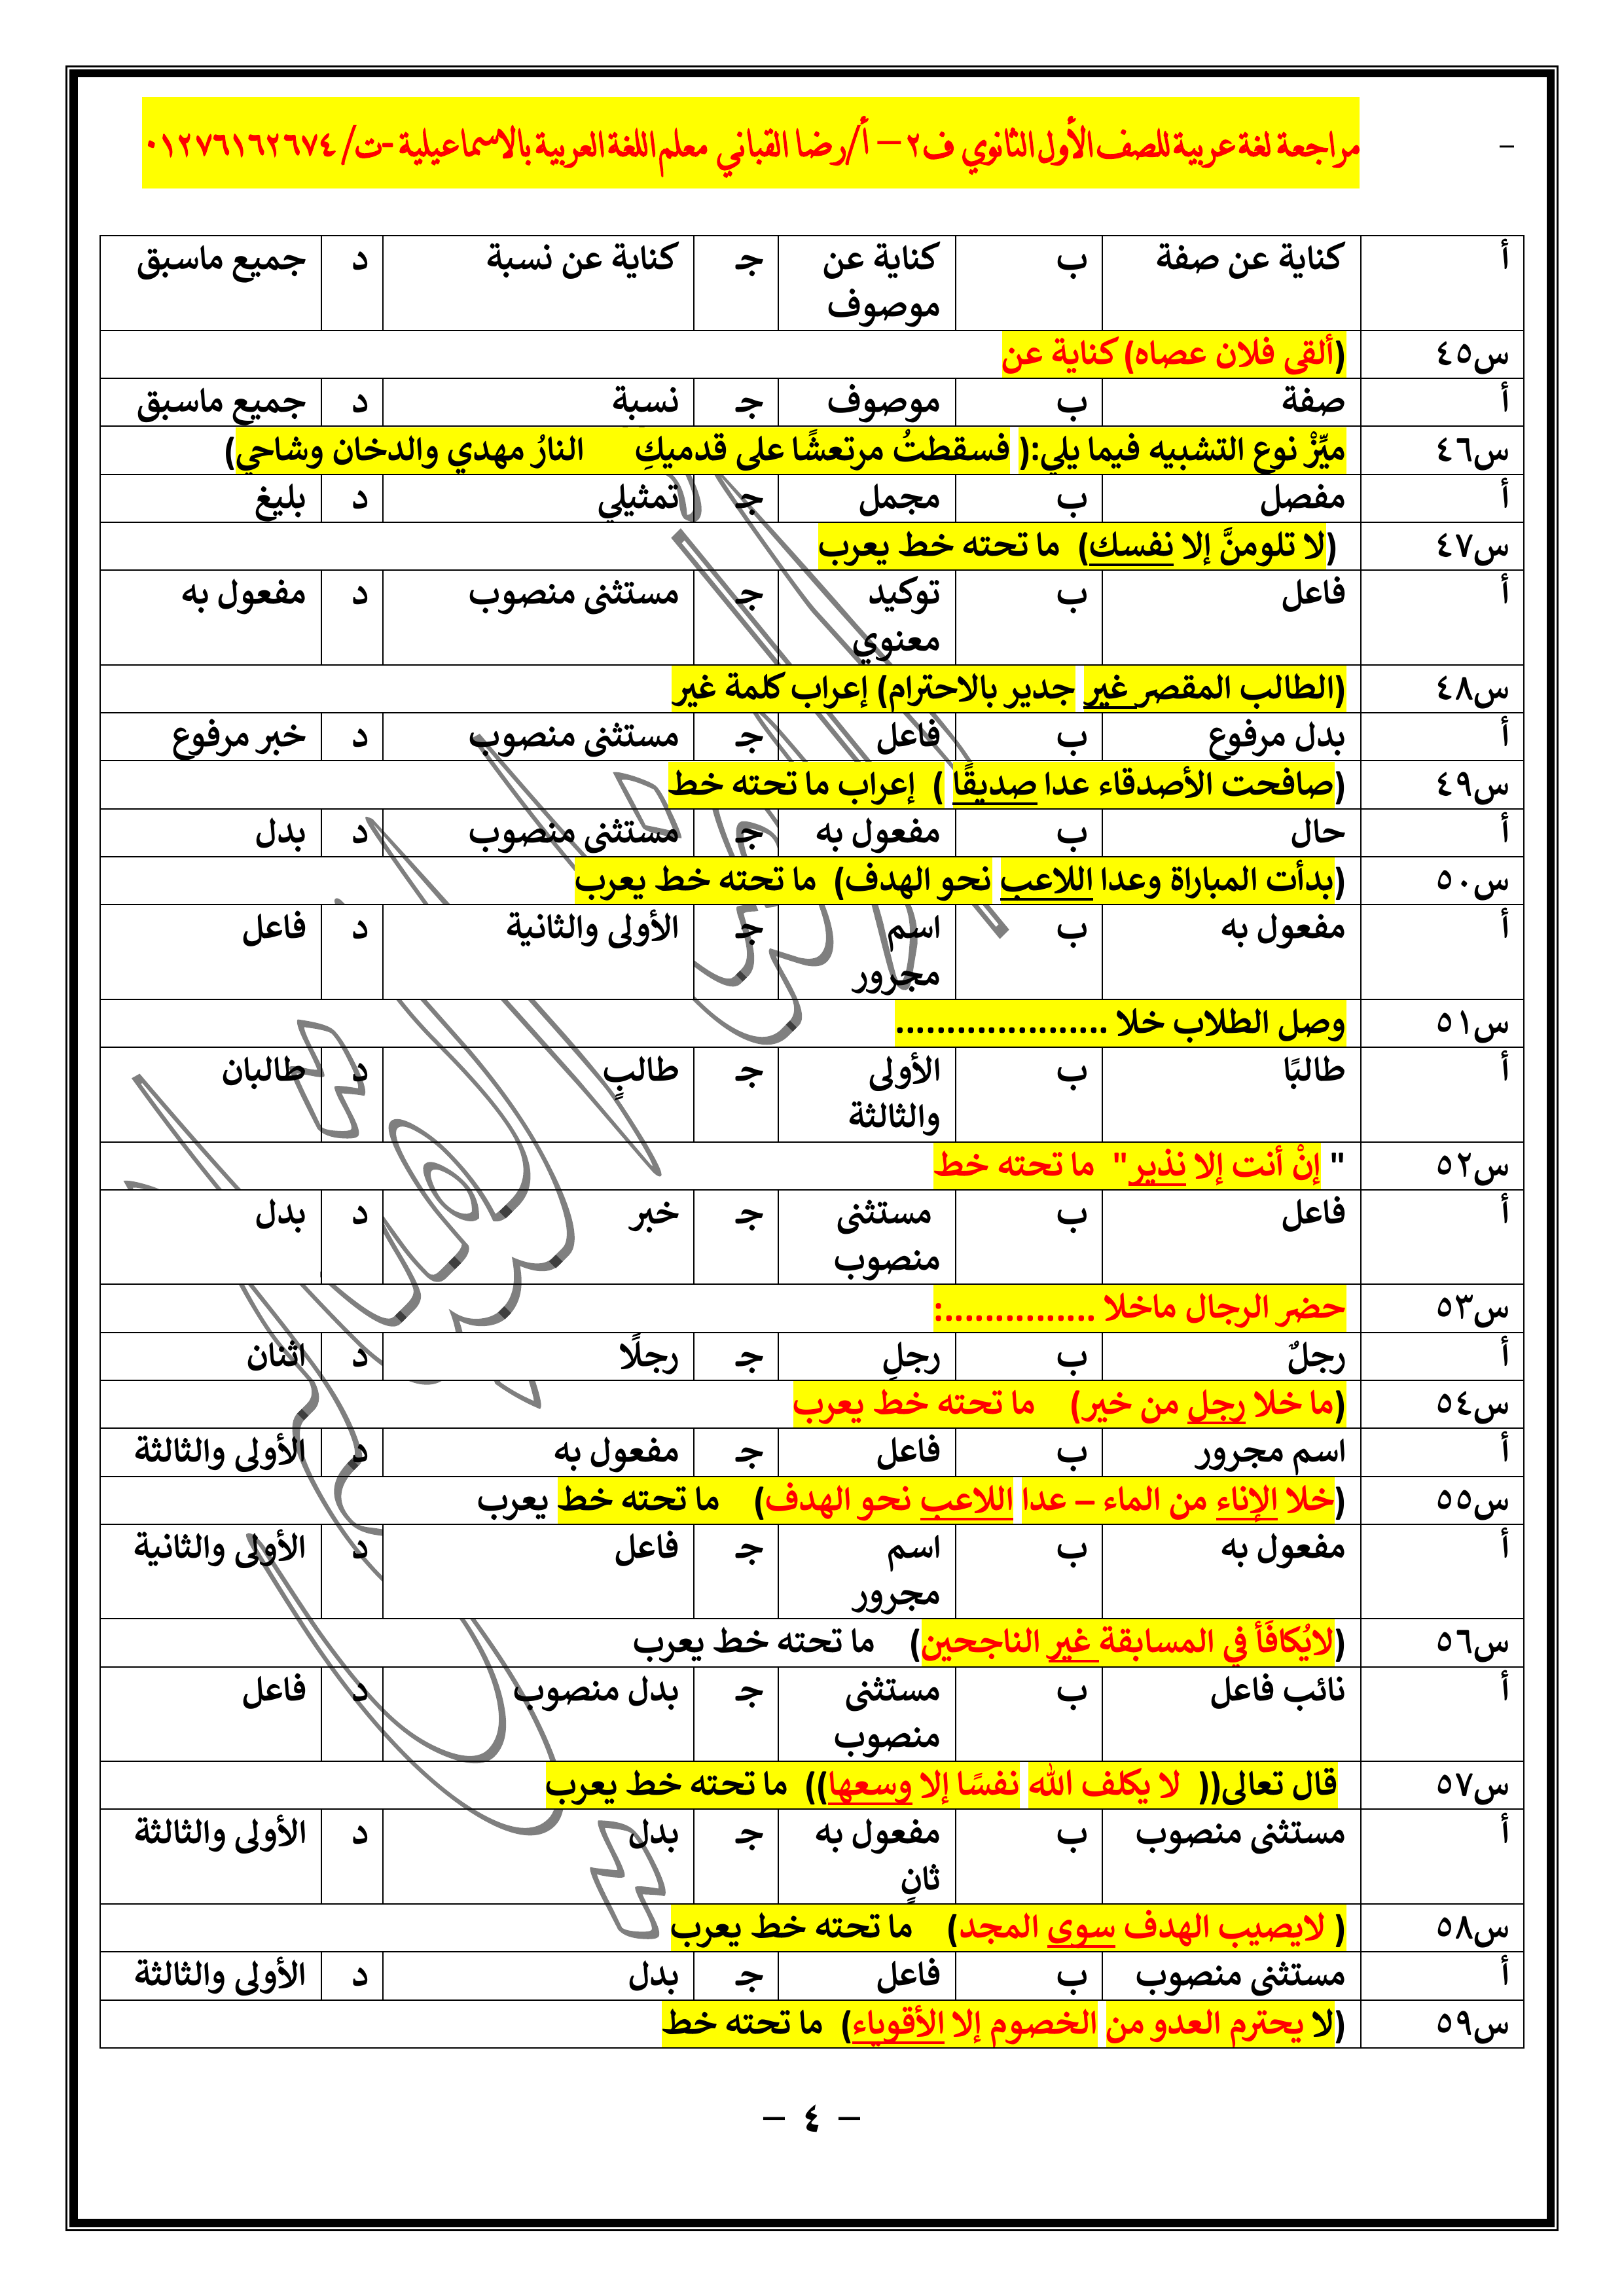 –
مراجعة لغة عربية للصف الأول الثانوي ف٢ – أ/رضا القباني معلم اللغة العربية بالاسماعيلية -ت/ ٠١٢٧٦١٦٢٦٧٤
أ كناية عن صفة ب كناية عن موصوف جـ كناية عن نسبة د جميع ماسبق
س٤٥ (ألقى فلان عصاه) كناية عن
أ صفة ب موصوف جـ نسبة د جميع ماسبق
س٤٦ ميِّزْ نوع التشبيه فيما يلي:( فسقطتُ مرتعشًا على قدميكِ النارُ مهدي والدخان وشاحي)
أ مفصل ب مجمل جـ تمثيلي د بليغ
س٤٧ (لا تلومنَّ إلا نفسك) ما تحته خط يعرب
أ فاعل ب توكيد معنوي جـ مستثنى منصوب د مفعول به
س٤٨ (الطالب المقصر غير جدير بالاحترام) إعراب كلمة غير
أ بدل مرفوع ب فاعل جـ مستثنى منصوب د خبر مرفوع
س٤٩ (صافحت الأصدقاء عدا صديقًا ) إعراب ما تحته خط
أ حال ب مفعول به جـ مستثنى منصوب د بدل
س٥٠ (بدأت المباراة وعدا اللاعب نحو الهدف) ما تحته خط يعرب
أ مفعول به ب اسم مجرور جـ الأولى والثانية د فاعل
س٥١ وصل الطلاب خلا .....................
أ طالبًا ب الأولى والثالثة جـ طالبٍ د طالبان
س٥٢ " إنْ أنت إلا نذير" ما تحته خط
أ فاعل ب مستثنى منصوب جـ خبر د بدل
س٥٣ حضر الرجال ماخلا ...............:
أ رجلٌ ب رجلٍ جـ رجلًا د اثنان
س٥٤ (ما خلا رجل من خير) ما تحته خط يعرب
أ اسم مجرور ب فاعل جـ مفعول به د الأولى والثالثة
س٥٥ (خلا الإناء من الماء – عدا اللاعب نحو الهدف) ما تحته خط يعرب
أ مفعول به ب اسم مجرور جـ فاعل د الأولى والثانية
س٥٦ (لايُكافَأ في المسابقة غير الناجحين) ما تحته خط يعرب
أ نائب فاعل ب مستثنى منصوب جـ بدل منصوب د فاعل
س٥٧ قال تعالى(( لا يكلف الله نفسًا إلا وسعها)) ما تحته خط يعرب
أ مستثنى منصوب ب مفعول به ثانٍ جـ بدل د الأولى والثالثة
س٥٨ ( لايصيب الهدف سوى المجد) ما تحته خط يعرب
أ مستثنى منصوب ب فاعل جـ بدل د الأولى والثالثة
س٥٩ (لا يحترم العدو من الخصوم إلا الأقوياء) ما تحته خط
– ٤ –